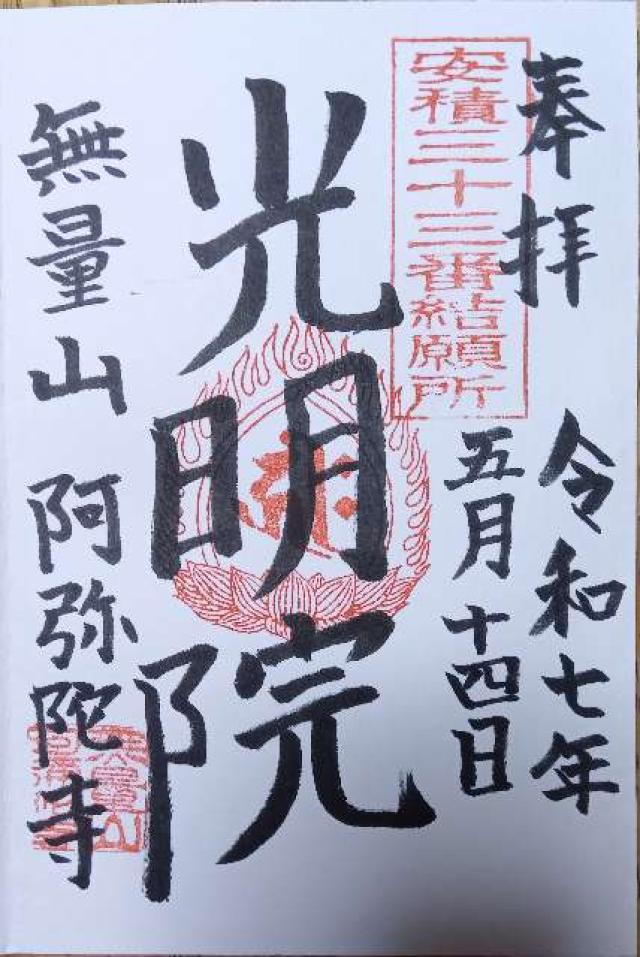 奉拝
安積三十三番結願所
令和七年
五月十四日
光明院
無量山 阿弥陀寺